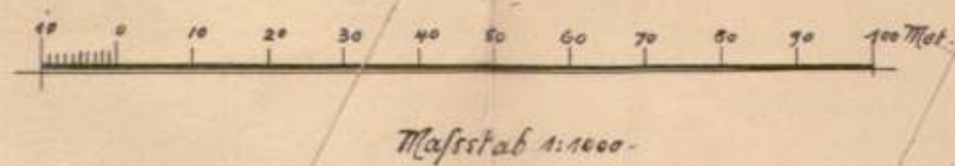 10 0 10 20 30 40 50 60 70 80 90 100 Met.
Maſsstab 1:1000.